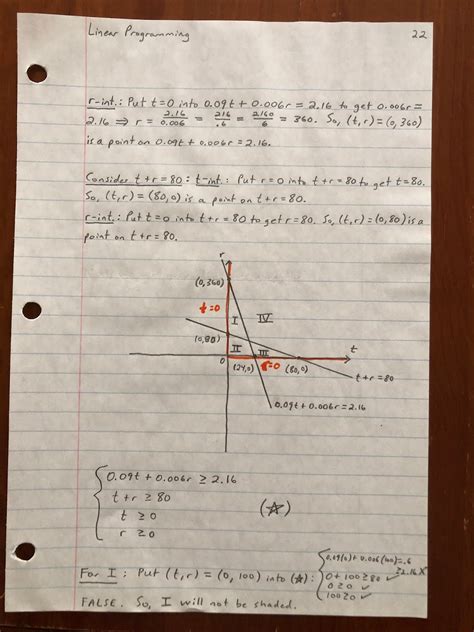 Linear Programming 22
r-int.: Put t=0 into 0.09t + 0.006r = 2.16 to get 0.006r =
2.16 ⇒ r = 2.16/0.006 = 216/.6 = 2160/6 = 360. So, (t,r) = (0, 360)
is a point on 0.09t + 0.006r = 2.16.
Consider t+r=80: t-int.: Put r=0 into t+r=80 to get t=80.
So, (t,r) = (80,0) is a point on t+r=80.
r-int.: Put t=0 into t+r=80 to get r=80. So, (t,r)=(0,80) is a
point on t+r=80.
r
(0,360)
t=0
I IV
(0,80)
II III t
0 (24,0) r=0 (80,0)
t+r=80
0.09t + 0.006r = 2.16
0.09t + 0.006r ≥ 2.16
t+r ≥ 80
t ≥ 0 (☆)
r ≥ 0
For I: Put (t,r) = (0, 100) into (☆):
0.09(0) + 0.006(100) = .6
≥ 2.16 X
0 + 100 ≥ 80 ✓
0 ≥ 0 ✓
100 ≥ 0 ✓
FALSE. So, I will not be shaded.